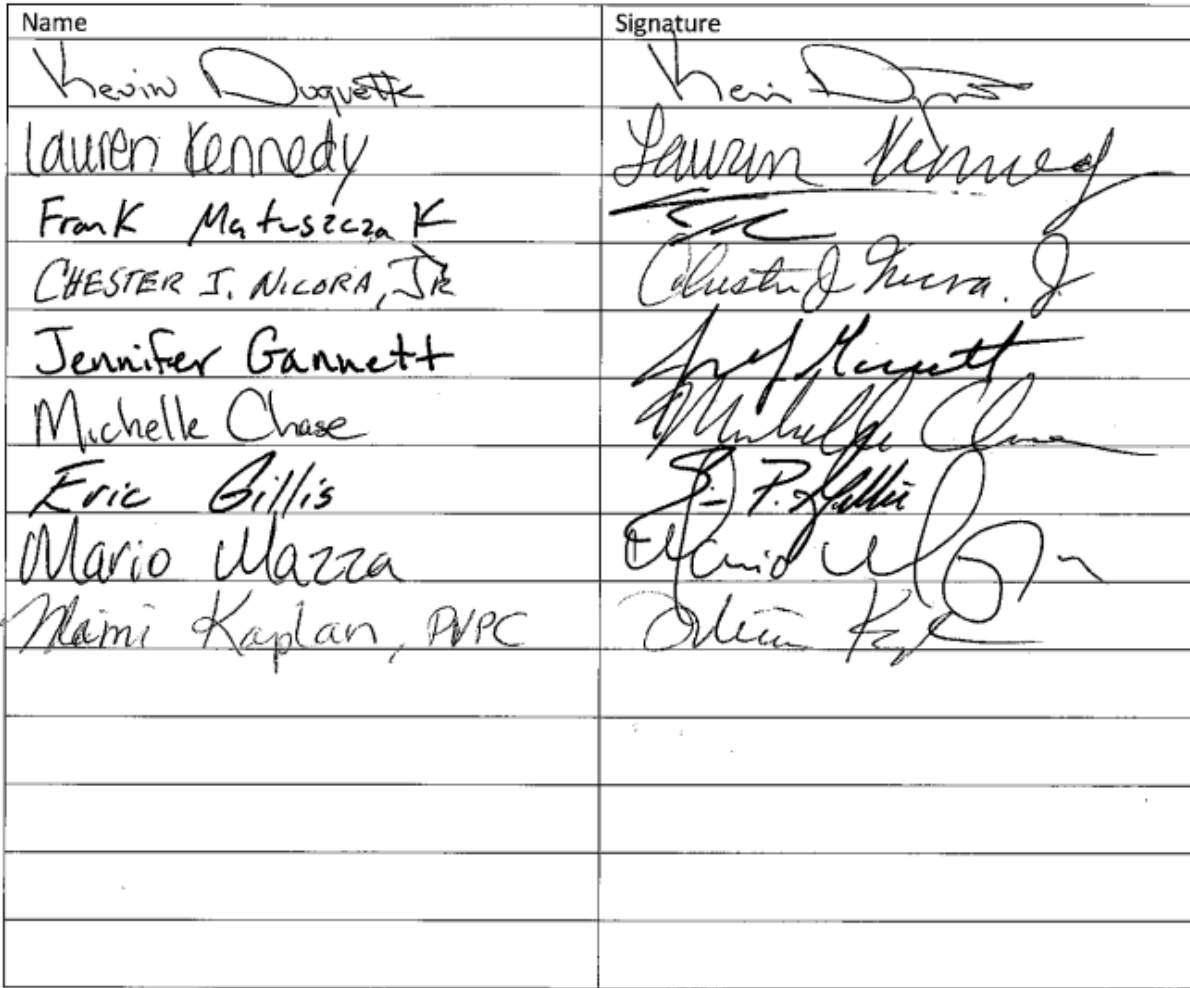 Name Signature
Kevin Duquette Kevin
Lauren Kennedy Lauren Kennedy
Frank Matuszczak
CHESTER J. NICORA, JR Chester J Nicora. Jr
Jennifer Gannett Gannett
Michelle Chase Michelle Chase
Eric Gillis P. Gillis
Mario Mazza Mario
Kaplan, PVPC